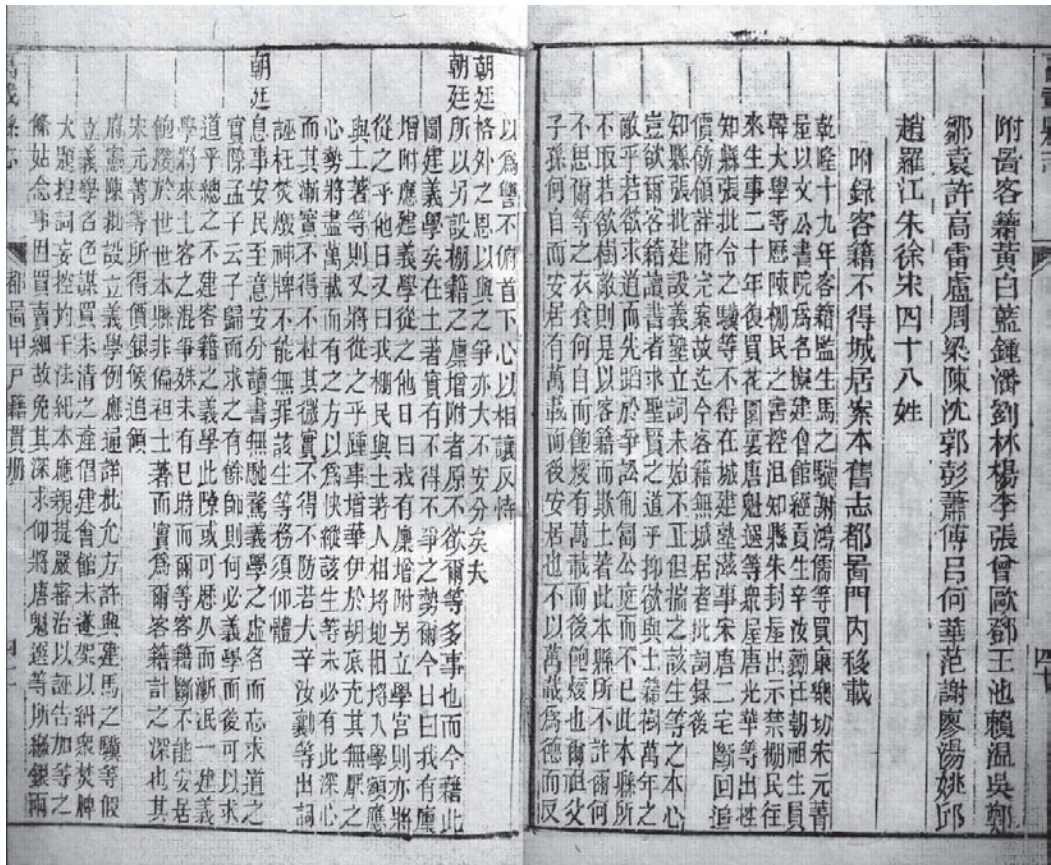 附啚客籍黃白藍鍾潘劉林楊李張曾歐鄧王池賴温吳鄭
鄒袁許高雷盧周梁陳沈郭彭蕭傅呂何華范謝廖湯姚邱
趙羅江朱徐宋四十八姓
附録客籍不得城居案本舊志都啚門內移載
乾隆十九年客籍監生馬之驥謝鴻儒等買康樂坊宋元菁
屋以文公書院爲名擬建會館經貢生辛汝勷汪朝祖生員
韓大學等歷陳棚民之害控沮知縣朱封屋出示禁棚民往
來生事二十年復買花園裏唐魁選等衆屋唐光華等出控
知縣張批令之驥等不得在城建塾滋事宋唐二宅斷回追
價飭領詳府完案故迄今客籍無城居者批詞録後
知縣張批建設義塾立詞未始不正但揣之該生等之本心
豈欲爾客籍讀書者求聖賢之道乎抑欲與土籍樹萬年之
敵乎若欲求道而先蹈於爭訟制訇公庭而不已此本縣所
不取若欲樹敵則是以客籍而欺土著此本縣所不許爾何
不思爾等之衣食何自而飽煖有萬載而後飽煖也爾祖父
子孫何自而安居有萬載而後安居也不以萬載爲德而反
以爲讐不俯首下心以相讓反恃
朝廷格外之恩以與之爭亦大不安分矣夫
朝廷所以另設棚籍之廩增附者原不欲爾等多事也而今藉此
圖建義學矣在土著實有不得不爭之勢爾今日曰我有廩
增附應建義學從之他日曰我有廩增附另立學宮則亦將
從之乎他日又曰我棚民與土著人相埒地相埒入學額應
與土著等則又將從之乎踵事增華伊於胡底充其無厭之
心勢將盡萬載而有之方以爲快縱該生等未必有此深心
而其漸實不得不杜其微實不得不防若大辛汝勷等出詞
誣枉焚燬神牌不能無罪該生等務須仰體
朝廷息事安民至意安分讀書無馳騖義學之虛名而忘求道之
實際孟子云子歸而求之有餘師則何必義學而後可以求
道乎總之不建客籍之義學此隙或可厯久而漸泯一建義
學將來土客之混爭殊未有已時而爾等客籍斷不能安居
飽煖於世世本縣非偏袒土著而實爲爾客籍計之深也其
宋元菁等所得價銀候追領
府憲陳批設立義學例應通詳批允方許興建馬之驥等假
立義學名色謀買未清之產倡建會館未遂架以糾衆焚牌
大題控詞妄控灼干法紀本應親提嚴審治以誣告加等之
條姑念事因買賣細故免其深求仰將唐魁選等所繳銀兩
都啚甲戶籍貫册